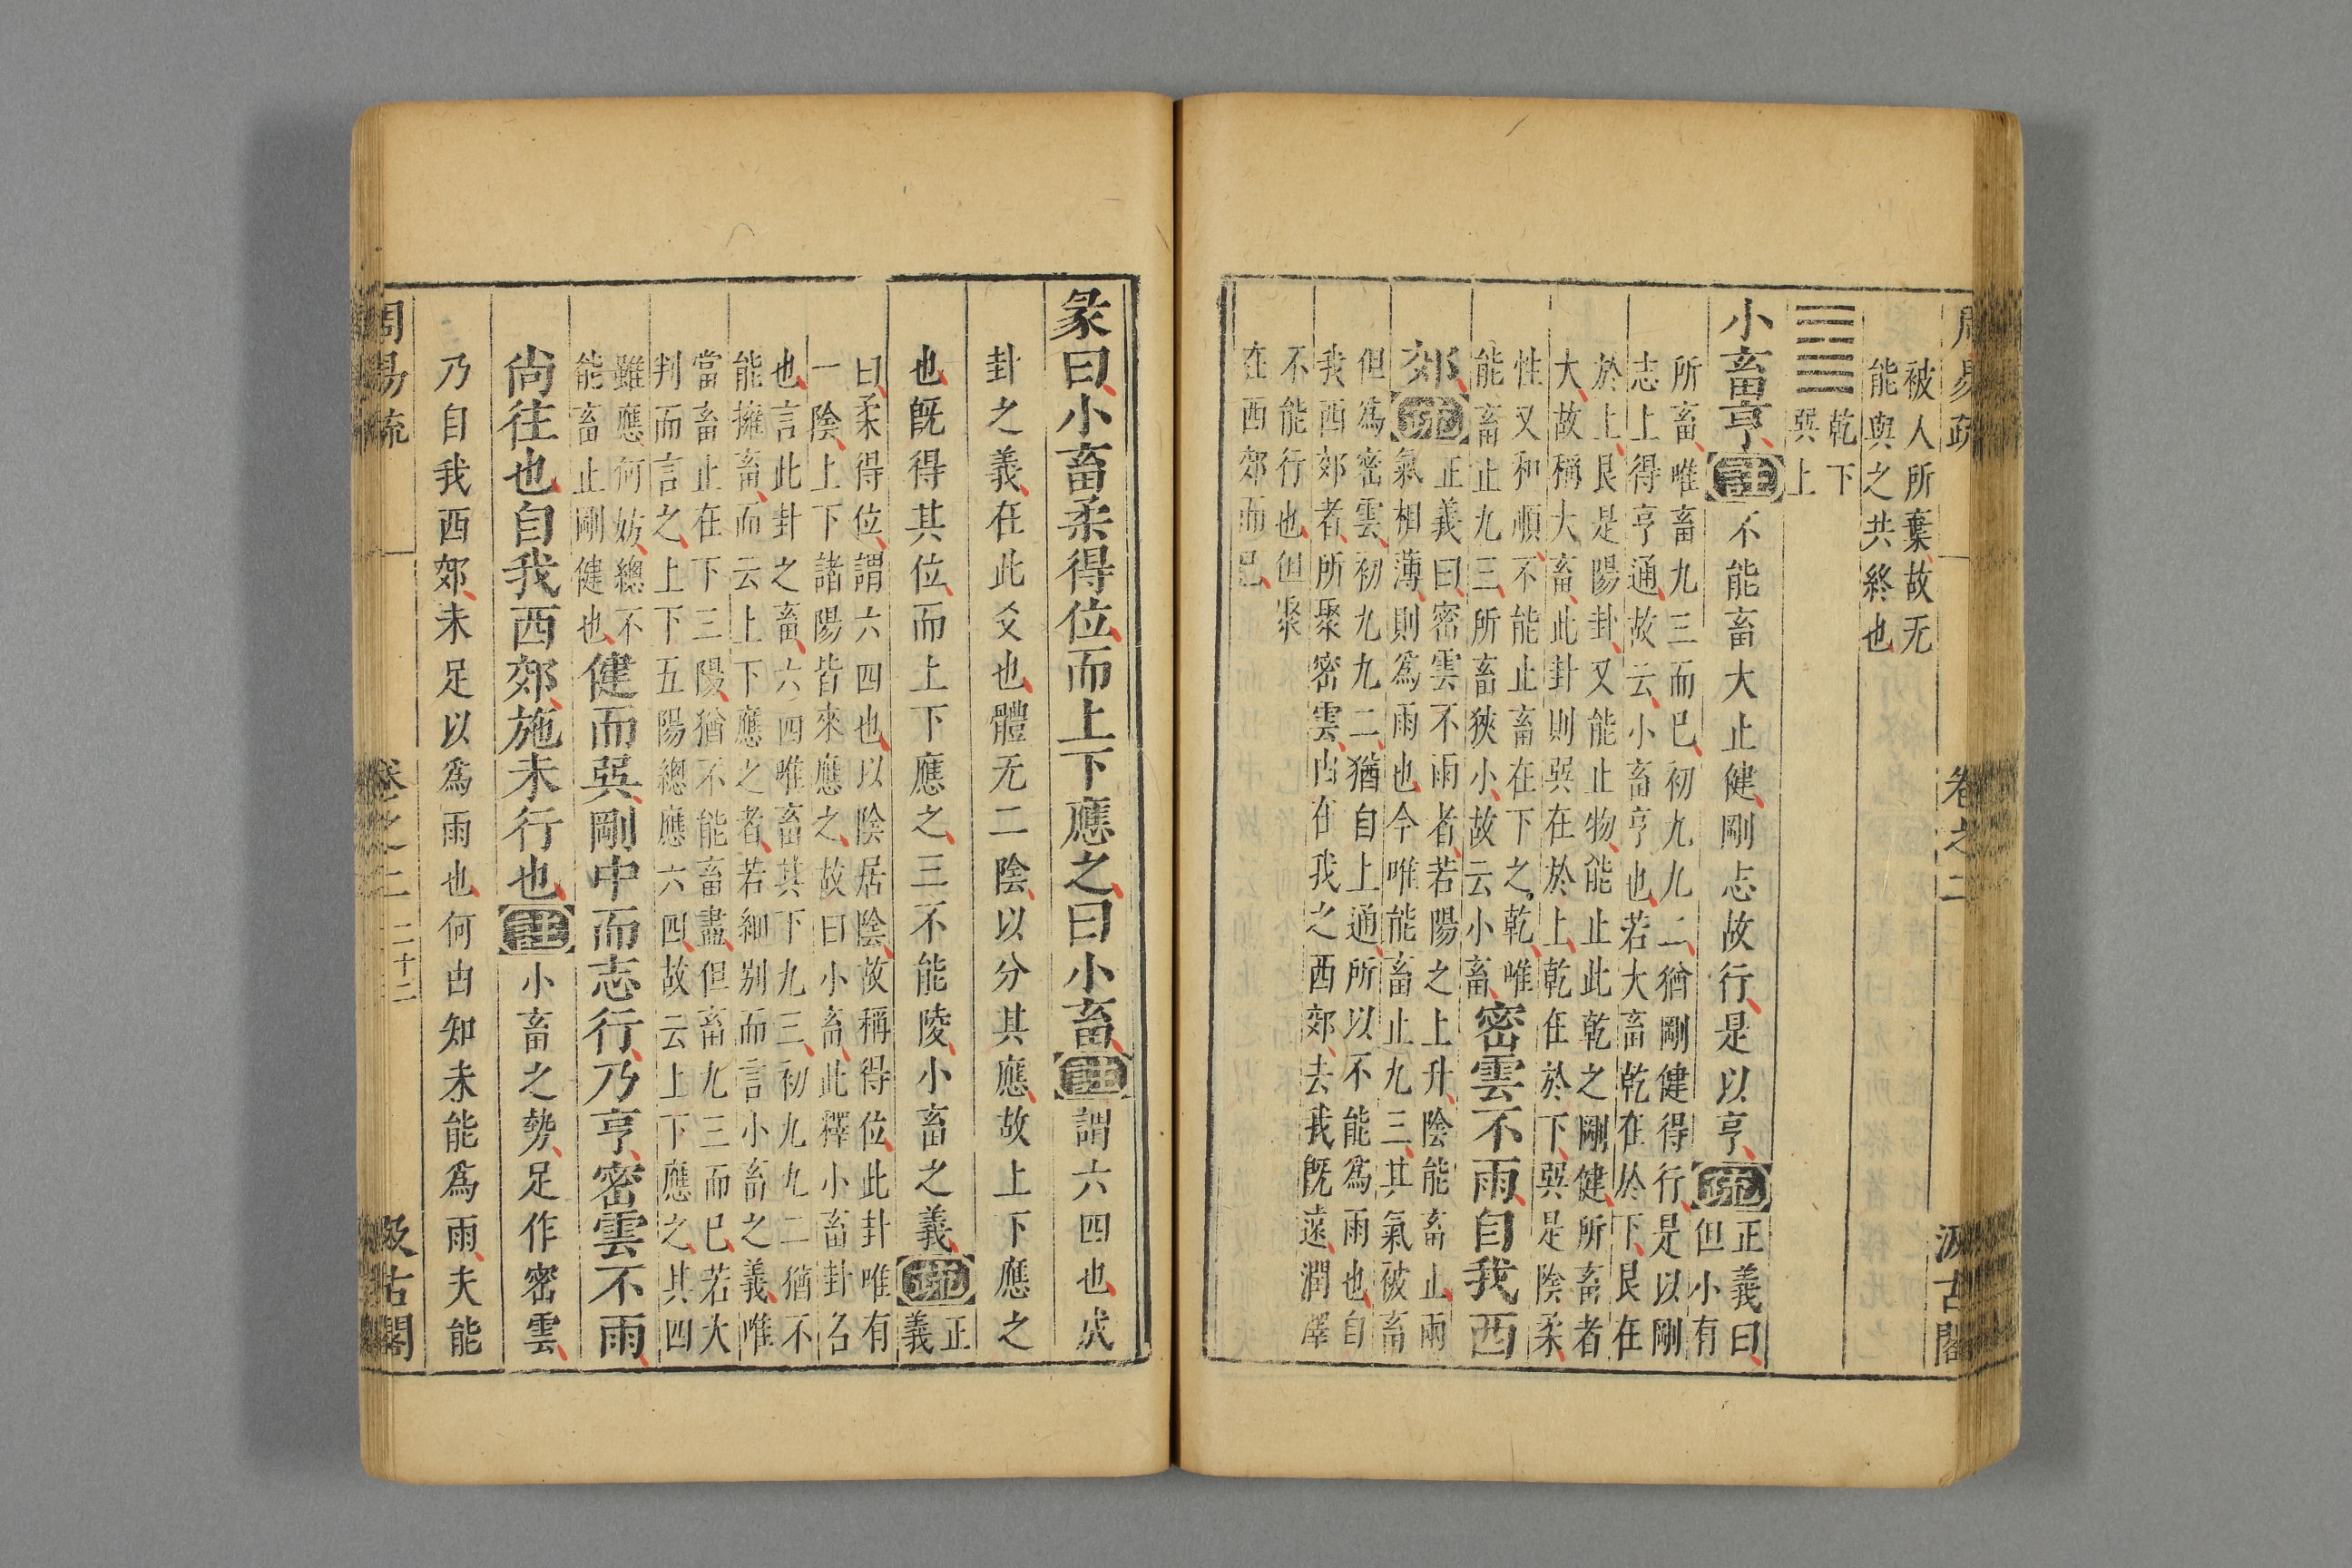 周易疏 卷之二 汲古閣
被人所棄故无
能與之共終也
乾下
巽上
小畜亨註不能畜大止健剛志故行是以亨疏正義曰
但小有
所畜唯畜九三而已初九九二猶剛健得行是以剛
志上得亨通故云小畜亨也若大畜乾在於下艮在
於上艮是陽卦又能止物能止此乾之剛健所畜者
大故稱大畜此卦則巽在於上乾在於下巽是陰柔
性又和順不能止畜在下之乾唯
能畜止九三所畜狹小故云小畜
密雲不雨自我西
郊疏
正義曰密雲不雨者若陽之上升陰能畜止兩
氣相薄則爲雨也今唯能畜止九三其氣被畜
但爲密雲初九九二猶自上通所以不能爲雨也自
我西郊者所聚密雲由在我之西郊去我既遠潤澤
不能行也但聚
在西郊而已
彖曰小畜柔得位而上下應之曰小畜註謂六四也成
卦之義在此爻也體无二陰以分其應故上下應之
也既得其位而上下應之三不能陵小畜之義疏正
義
曰柔得位謂六四也以陰居陰故稱得位此卦唯有
一陰上下諸陽皆來應之故曰小畜此釋小畜卦名
也言此卦之畜六四唯畜其下九三初九九二猶不
能擁畜而云上下應之者若細別而言小畜之義唯
當畜止在下三陽猶不能畜盡但畜九三而已若大
判而言之上下五陽總應六四故云上下應之其四
雖應何妨總不
能畜止剛健也
健而巽剛中而志行乃亨密雲不雨
尚往也自我西郊施未行也註小畜之勢足作密雲
乃自我西郊未足以爲雨也何由知未能爲雨夫能
周易疏 卷之二 二十二 汲古閣